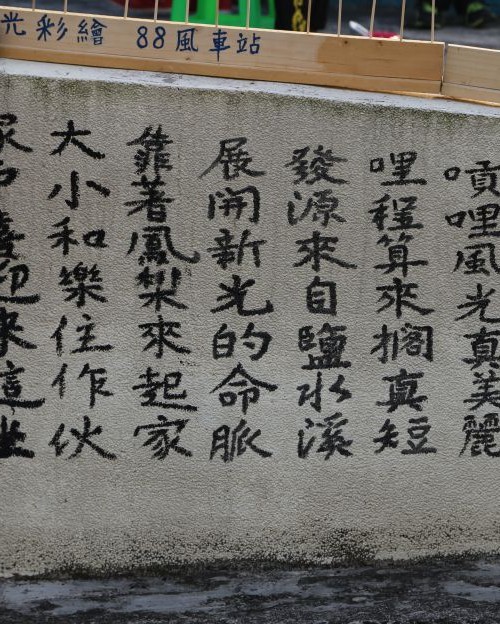 光彩繪 88風車站
嗊哩風光真美麗
哩程算來擱真短
發源來自鹽水溪
展開新光的命脈
靠著鳳梨來起家
大小和樂住作伙
喜迎來這